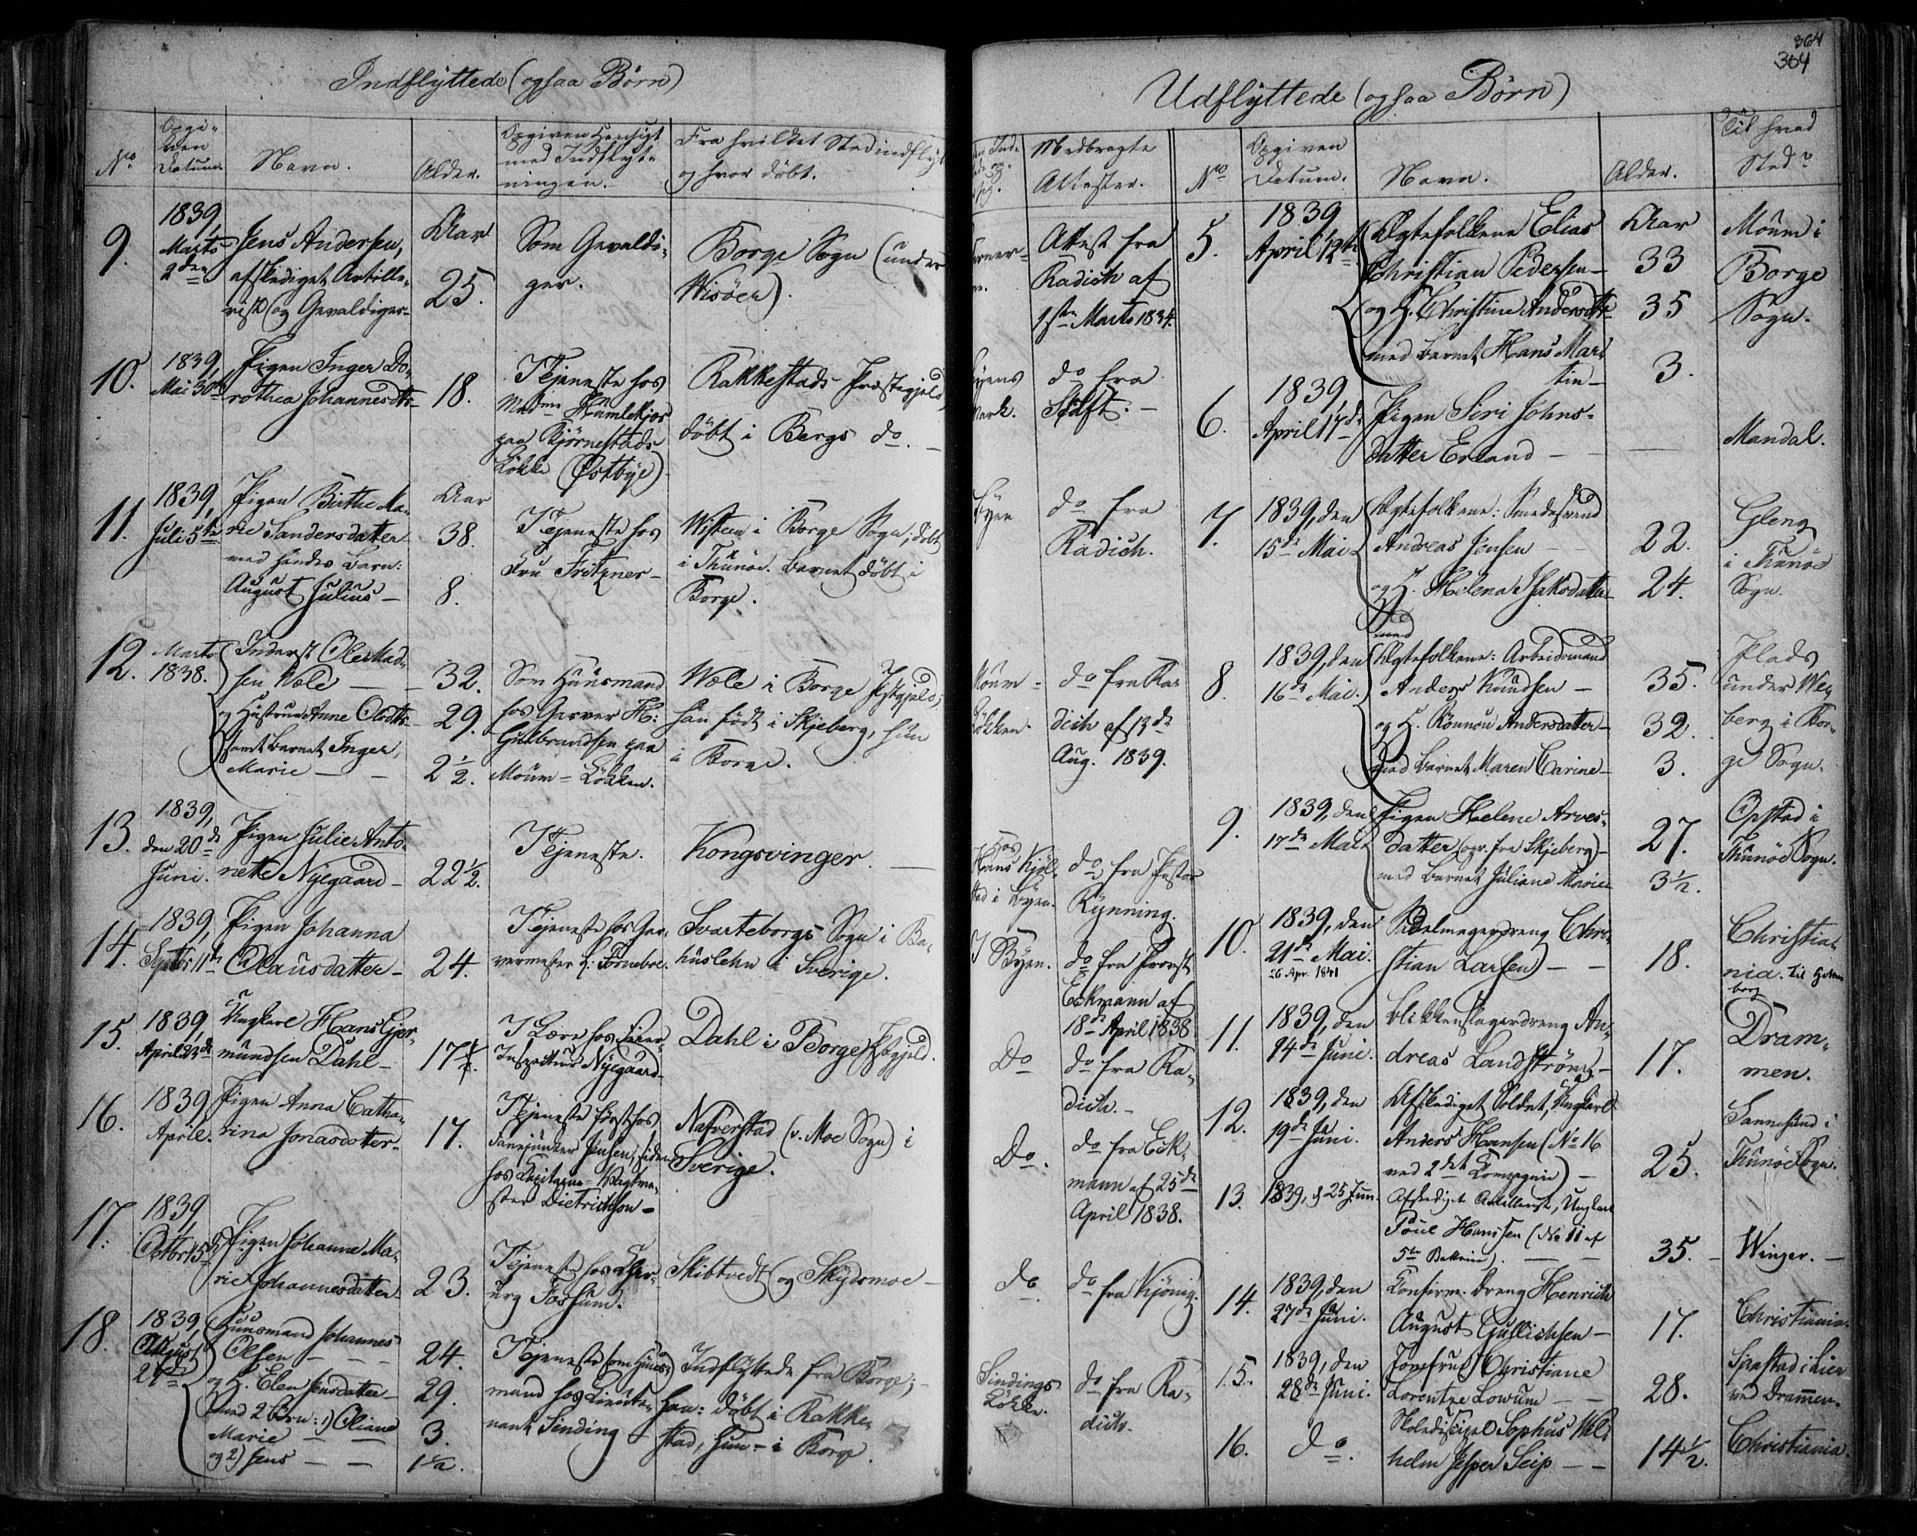 Indflyttede (ogsaa Børn)
No.
Opgi-
ven
Datum.
Navn.
Alder.
Opgiven Hensigt
med Indflyt-
ningen.
Fra hvilket Sted indflyt
og hvor døbt.
9.
1839,
Marts
2den
Jens Andersen,
afskediget Artille-
rist (og Gevaldiger-
Aar
25.
Som Gevaldi-
ger.
Borge Sogn (under
Wisøen).
10.
1839,
Mai 30te
Pigen Inger Do-
rothea Johannesdtr
18.
I Tjeneste hos
paa Bjørnestads-
Løkke (Østbye)
Rakkestads Præstegjeld,
døbt i Bergs do. -
11.
1839,
Juli 5te
Pigen Birthe Ma-
rie Sandersdatter
med hendes Barn:
August Julius -
Aar
38.
8.
I Tjeneste hos
Fru Fritzner -
Wisteen i Borge Sogn; døbt
i Thunøe. Barnet døbt i
Borge.
12.
Marts
1838.
Inderst Ole Mad-
sen Wæle
og Hustrue Anne Olsdtr.
samt Barnet Inger
Marie -
32.
29.
2 1/2.
Som Huusmand
hos Garver H:
Gulbrandsen paa
Moum-Løkken.
Wæle i Borge Pstgjeld;
han født i Skjeberg, hun
i Borge.
13.
1839,
den 20de
Juni.
Pigen Julie Anto-
nette Nyegaard -
22 1/2.
I Tjeneste.
Kongsvinger.
14.
1839,
Septbr 11te
Pigen Johanna
Olausdatter -
24.
I Tjeneste hos Gar-
vermester H: Tornebre.
Svarteborgs Sogn i Ba-
huslehn i Sverige.
15.
1839,
April 23de
Ungkarl Hans Gjer-
mundsen Dahl -
17
I Lære hos
Inspecteur Nyegaard
Dahl i Borge Pstgjeld.
16.
1839
April.
Pigen Anna Catha-
rina Jonasdotter -
17.
I Tjeneste først hos
Fanejunker Jensen, siden
hos Capitaine-Vagtme-
ster Dietrichson -
Nafverstad (v. Moe Sogn) i
Sverige.
17.
1839
Octbr 15de
Pigen Johanne Ma-
rie Johannesdatter
23.
I Tjeneste hos Chir-
urg Fossum.
Skibtvedt (og Skydsmoe -
18.
1839,
August
27de
Huusmand Johannes
Olsen
og H. Elen Jensdatter
med 2 Børn: 1) Oliane
Marie
og 2) Jens
24.
29.
3.
1 1/2.
I Tjeneste (som Huus-
mand hos Lieute-
nant Sinding
Indflyttede fra Borge; -
Han: døbt i Rakke-
stad, Hun - i Borge.
364
304
Udflyttede (ogsaa Børn)
Medbragte
Attester.
No
Opgiven
Datum.
Navn.
Alder.
Til hvad
Sted?
Attest fra
Radich af
1ste Marts 1834.
5.
1839
April 12te
Ægtefolkene Elias
Christian Pedersen -
og H. Christine Andersdtr
med Barnet Hans Mar-
tin -
Aar
33
35
3.
Moum i
Borge
Sogn.
do fra
Stift. -
6.
1839,
April 17de
Pigen Siri Johns-
datter Erland
Mandal.
Byen
do fra
Radich.
7.
1839, den
15de Mai
Ægtefolkene: Smedesvend
Andreas Jensen
og H. Helena Isaksdatter
med
22.
24.
Gleng
i Thunøe
Sogn.
Moum-
Løkken.
do fra Ra-
dich af 13de
Aug. 1839.
8.
1839, den
16de Mai.
Ægtefolkene: Arbeidsmand
Anders Knudsen -
og H. Rønnou Andersdatter -
med Barnet Maren Carine -
35.
32.
3.
Plads
under We-
berg i Bor-
ge Sogn.
hos
Hans Kjøl-
stad i Byen.
do fra Pastor
Rynning.
9.
1839, den
17de Mai
Pigen Helene Arves-
datter (opr. fra Skjeberg)
med Barnet Juliane Marie
27.
3 1/2.
Opstad i
Thunøe Sogn.
I Byen.
do fra Provst
Eckmann af
18de April 1838
10.
1839, den
21de Mai.
26 Apr. 1841
Sadelmagerdreng Chri-
stian Larsen) -
18.
Christia-
nia. til Gothen
borg
Do
do fra Ra-
dich. -
11.
1839, den
14de Juni.
blikkenslagerdreng An-
dreas Landstrøm -
17.
Dram-
men.
Do.
do fra Eck-
mann af 25de
April 1838.
12.
1839, den
19de Juni.
Afskediget Soldat, Ungkarl
Anders Hansen (No 16
ved 2det Kompagnie) -
25.
Sannesund i
Thunøe Sogn.
13.
1839, d 25 Juni.
Afskediget Artillerist, Ungkarl
Poul Hanssen (No 11 af
5te Batterie)
35. -
Winger. -
do
do fra Kjønig.
14.
1839, den
27de Juni.
Confirm. Dreng Henrich
August Gullichsen -
17.
Christiania.
Sindings
Løkke.
do fra Ra-
dich.
15.
1839, den
28de Juni.
Jomfrue Christiane
Lorentze Lowum
28.
Spastad i Lier
ved Drammen.
16.
do.
Skoledisipel Sophus Wil-
helm Jesper Seip
14 1/2.
Christiania.